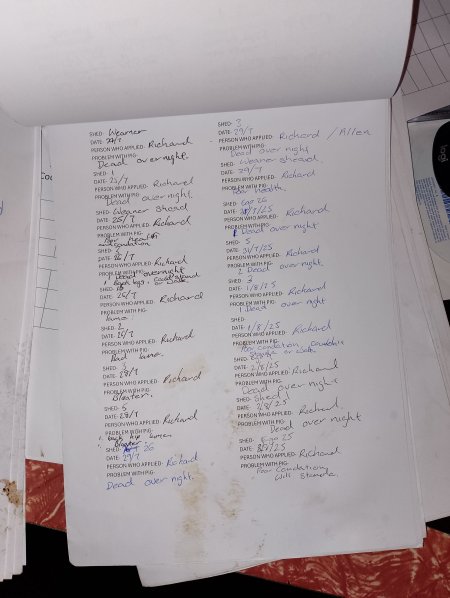 SHED: Weaner
DATE: 24/7
PERSON WHO APPLIED: Richard
PROBLEM WITH PIG:
Dead over night.
SHED: 1
DATE: 25/7
PERSON WHO APPLIED: Richard
PROBLEM WITH PIG:
Dead over night
SHED: Weaner Shead
DATE: 25/7
PERSON WHO APPLIED: Richard
PROBLEM WITH PIG:
SHED:
DATE: 26/7
PERSON WHO APPLIED: Richard
PROBLEM WITH PIG:
1 Dead overnight
SHED:
DATE: 26/7
PERSON WHO APPLIED: Richard
PROBLEM WITH PIG:
lame
SHED: 2
DATE: 26/7
PERSON WHO APPLIED: Richard
PROBLEM WITH PIG:
lame
SHED: 3
DATE: 28/7
PERSON WHO APPLIED: Richard
PROBLEM WITH PIG:
Bloater.
SHED: 5
DATE: 28/7
PERSON WHO APPLIED: Richard
PROBLEM WITH PIG:
Bloater
SHED: 26
DATE: 29/7
PERSON WHO APPLIED: Richard
PROBLEM WITH PIG:
Dead over night.
SHED: 3
DATE: 29/7
PERSON WHO APPLIED: Richard / Allen
PROBLEM WITH PIG:
Dead over night
SHED: Weaner shead.
DATE: 29/7
PERSON WHO APPLIED: Richard
PROBLEM WITH PIG:
Poor health
SHED: Ego 26
DATE: /7/25
PERSON WHO APPLIED: Richard
PROBLEM WITH PIG:
1 Dead over night
SHED: 5
DATE: 31/7/25
PERSON WHO APPLIED: Richard
PROBLEM WITH PIG:
2 Dead over night
SHED: 3
DATE: 1/8/25
PERSON WHO APPLIED: Richard
PROBLEM WITH PIG:
1 Dead over night
SHED:
DATE: 1/8/25
PERSON WHO APPLIED: Richard
PROBLEM WITH PIG:
Poor condation,
SHED:
DATE: 2/8/25
PERSON WHO APPLIED: Richard
PROBLEM WITH PIG:
Dead over night
SHED: Shed 1
DATE: 2/8/25
PERSON WHO APPLIED: Richard
PROBLEM WITH PIG:
Dead over night
SHED: Ego 25
DATE: /8/25
PERSON WHO APPLIED: Richard
PROBLEM WITH PIG:
Poor Condation,
logi